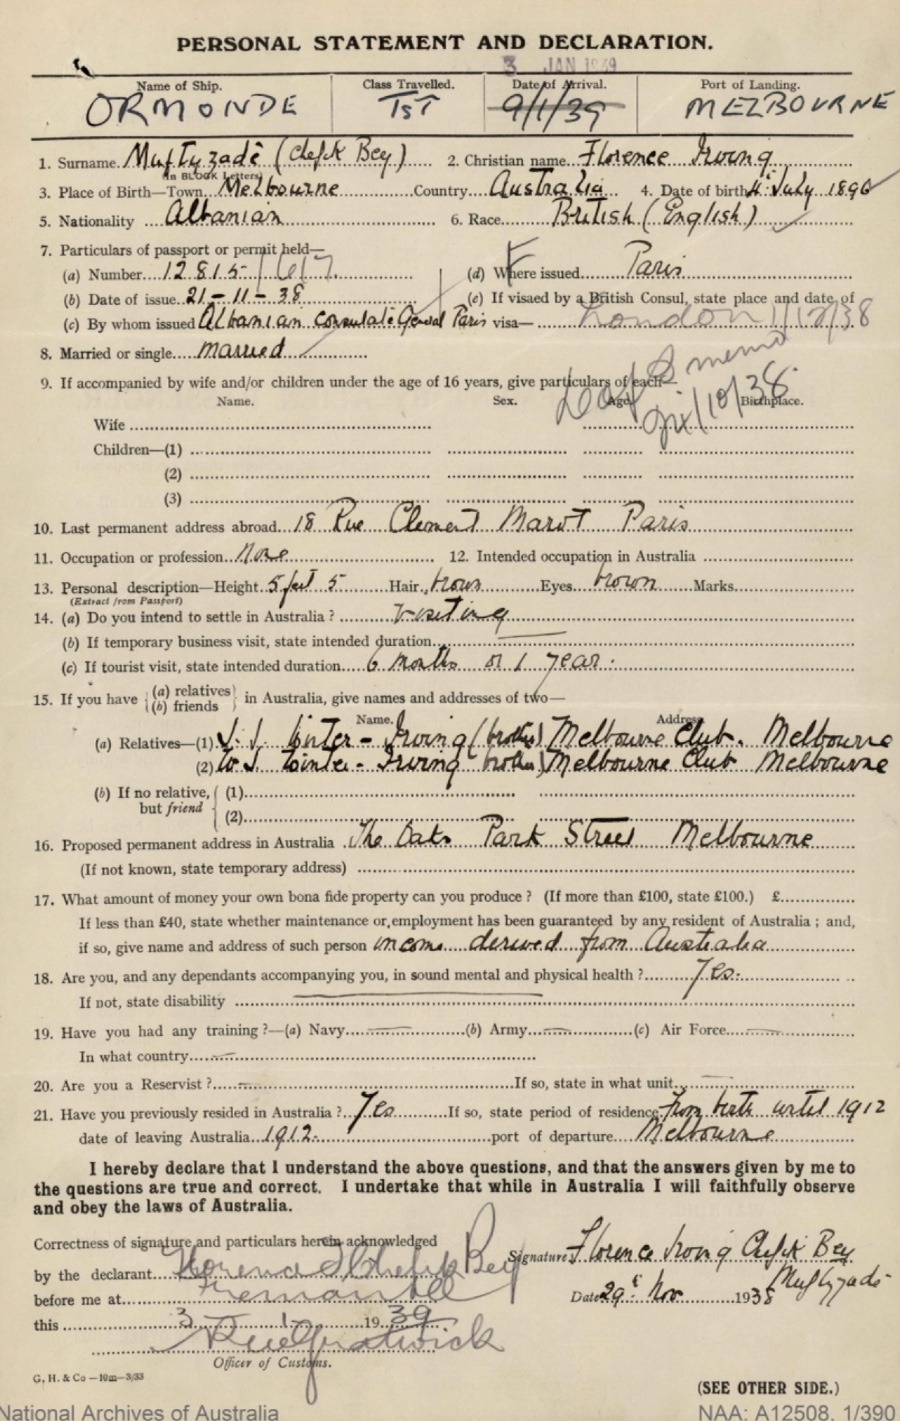 PERSONAL STATEMENT AND DECLARATION.
3 JAN 1939
Name of Ship. Class Travelled. Date of Arrival. Port of Landing.
ORMONDE 1ST 9/1/39 MELBOURNE
1. Surname Muftyzadè (Chefik Bey) 2. Christian name Florence Irving
(In BLOCK Letters)
3. Place of Birth—Town Melbourne Country Australia 4. Date of birth 4th July 1896
5. Nationality Albanian 6. Race British (English)
7. Particulars of passport or permit held—
(a) Number 12815/617. (d) Where issued Paris
(b) Date of issue 21-11-38 (e) If visaed by a British Consul, state place and date of
(c) By whom issued Albanian Consulate General Paris visa— London 1/12/38
8. Married or single married
9. If accompanied by wife and/or children under the age of 16 years, give particulars of each—
memo
Name. Sex. Age. Birthplace.
/10/38.
Wife
Children—(1)
(2)
(3)
10. Last permanent address abroad 18 Rue Clement Marot Paris
11. Occupation or profession None 12. Intended occupation in Australia
13. Personal description—Height 5 feet 5 Hair brown Eyes brown Marks
(Extract from Passport)
14. (a) Do you intend to settle in Australia ? Visiting
(b) If temporary business visit, state intended duration
(c) If tourist visit, state intended duration 6 months or 1 year.
15. If you have (a) relatives (b) friends in Australia, give names and addresses of two—
Name. Address.
(a) Relatives—(1) Winter-Irving (brother) Melbourne Club. Melbourne
(2) Winter-Irving brother) Melbourne Club Melbourne
(b) If no relative, but friend (1)
(2)
16. Proposed permanent address in Australia The Oaks Park Street Melbourne
(If not known, state temporary address)
17. What amount of money your own bona fide property can you produce ? (If more than £100, state £100.) £
If less than £40, state whether maintenance or employment has been guaranteed by any resident of Australia ; and,
if so, give name and address of such person income derived from Australia
18. Are you, and any dependants accompanying you, in sound mental and physical health ? Yes.
If not, state disability
19. Have you had any training ?—(a) Navy (b) Army (c) Air Force
In what country
20. Are you a Reservist ? If so, state in what unit
21. Have you previously resided in Australia ? Yes If so, state period of residence from birth until 1912
date of leaving Australia 1912. port of departure Melbourne
I hereby declare that I understand the above questions, and that the answers given by me to
the questions are true and correct. I undertake that while in Australia I will faithfully observe
and obey the laws of Australia.
Correctness of signature and particulars herein acknowledged
by the declarant Florence I Chefik Bey Signature Florence Irving Chefik Bey
Muftyzadè
before me at Fremantle Date 29th Nov. 1938
this 3 1 1939
Officer of Customs.
G. H. & Co —10m—3/33
(SEE OTHER SIDE.)
National Archives of Australia NAA: A12508, 1/390